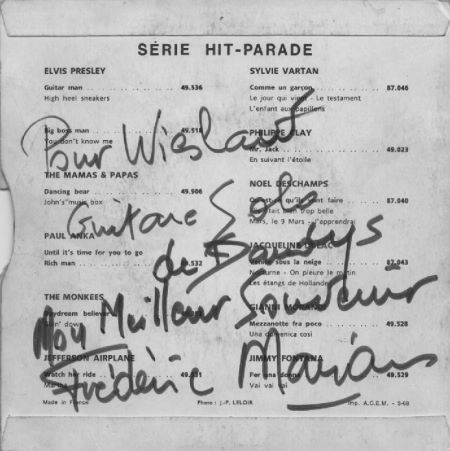 SÉRIE HIT-PARADE
ELVIS PRESLEY
Guitar man .. 49.536
High heel sneakers
Big boss man
You don't know me
THE MAMAS & PAPAS
Dancing bear .. 49.906
John's music box
PAUL ANKA
Until it's time for you to go
Rich man
THE MONKEES
Daydream believer
JEFFERSON AIRPLANE
Watch her ride
SYLVIE VARTAN
Comme un garçon .. 87.046
Le jour qui vient - Le testament
L'enfant aux papillons
PHILIPPE CLAY
Mr. Jack .. 49.023
En suivant l'étoile
NOEL DESCHAMPS
87.040
trop belle
Mars, le 9 Mars
JACQUELINE
sous la neige .. 87.043
Nocturne - On pleure le matin
Les étangs de Hollande
GIANNI
Mezzanotte fra poco .. 49.528
Una domenica così
JIMMY FONTANA
Per una donna .. 49.529
Vai vai vai
Made in France
Photo : J.-P. LELOIR
Imp. A.G.E.M. - 3-68
Pour
Guitare Solo
de
Mon Meilleur Souvenir
Frédéric